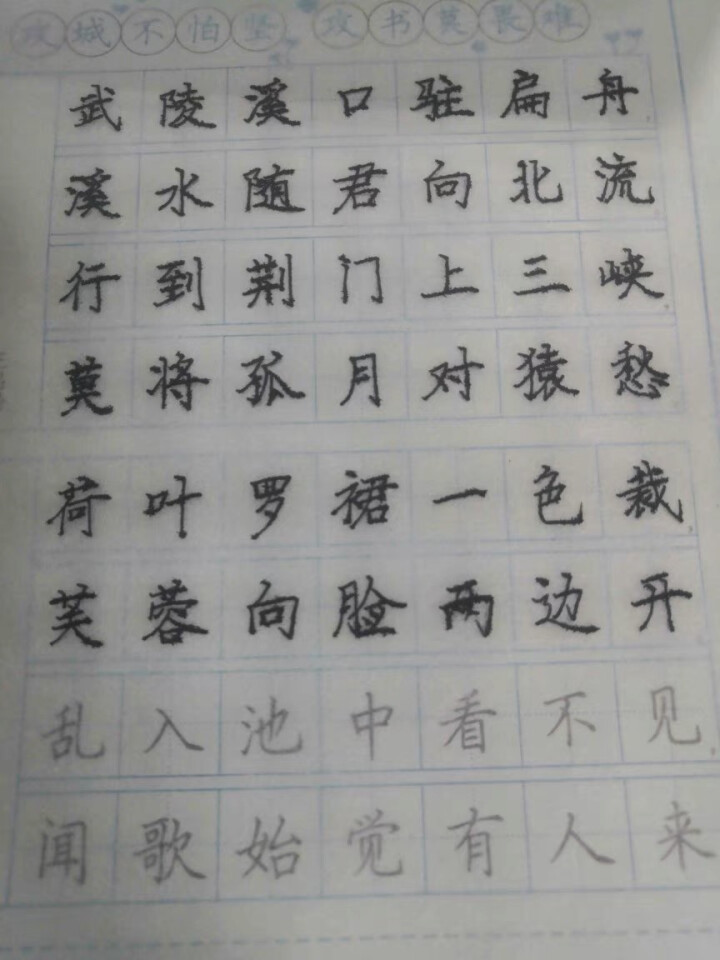 攻城不怕坚 攻书莫畏难
武陵溪口驻扁舟
溪水随君向北流
行到荆门上三峡
莫将孤月对猿愁
荷叶罗裙一色裁
芙蓉向脸两边开
乱入池中看不见
闻歌始觉有人来